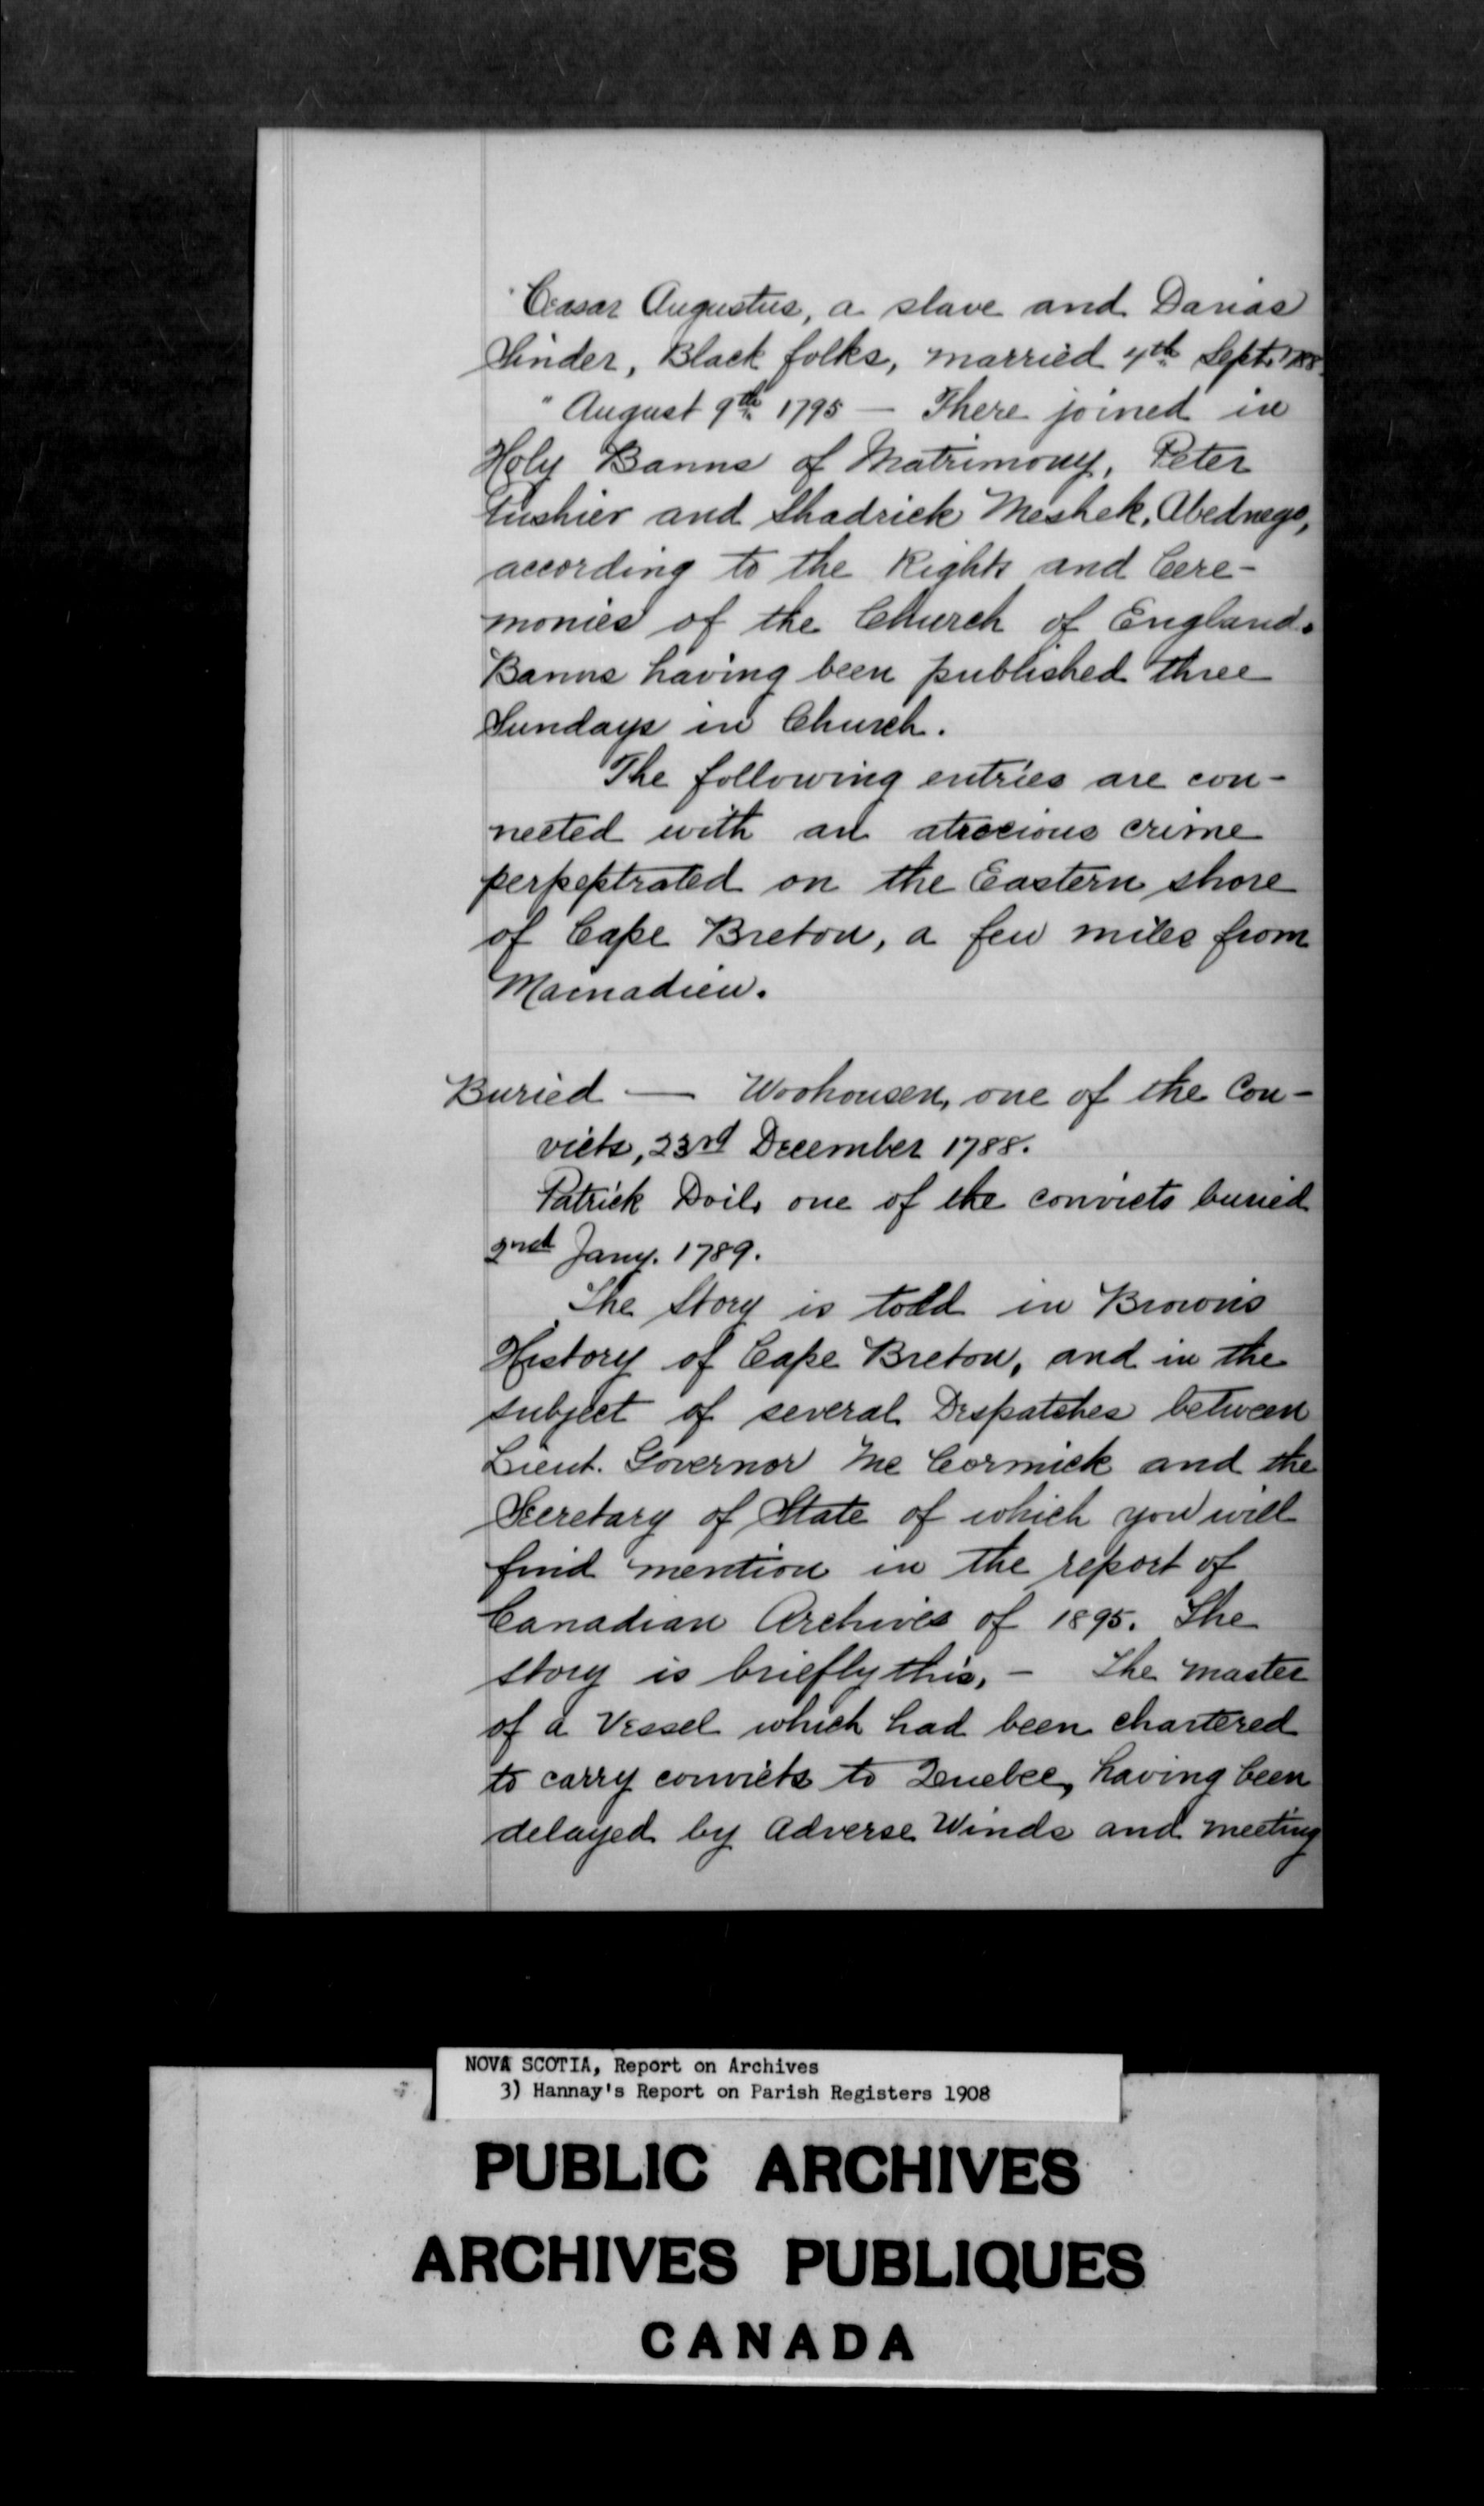 "Ceasar Augustus, a slave and Darias
Sinder, Black folks, married 4th Sept. 1788.
"August 9th 1795 — There joined in
Holy Banns of Matrimony, Peter
Cushier and Shadrick Meshek, Abednego,
according to the Rights and Cere-
monies of the Church of England.
Banns having been published three
Sundays in Church.
The following entries are con-
nected with an atrocious crime
perpeptrated on the Eastern shore
of Cape Breton, a few miles from
Mainadieu.
Buried — Woohousen, one of the Con-
victs, 23rd December 1788.
Patrick Doil, one of the convicts buried
2nd Jany. 1789.
The Story is told in Brown's
History of Cape Breton, and in the
subject of several Despatches between
Lieut. Governor Mc Cormick and the
Secretary of State of which you will
find mention in the report of
Canadian Archives of 1895. The
story is briefly this, — The master
of a Vessel which had been chartered
to carry convicts to Quebec, having been
delayed by Adverse Winds and meeting
NOVA SCOTIA, Report on Archives
3) Hannay's Report on Parish Registers 1908
PUBLIC ARCHIVES
ARCHIVES PUBLIQUES
CANADA